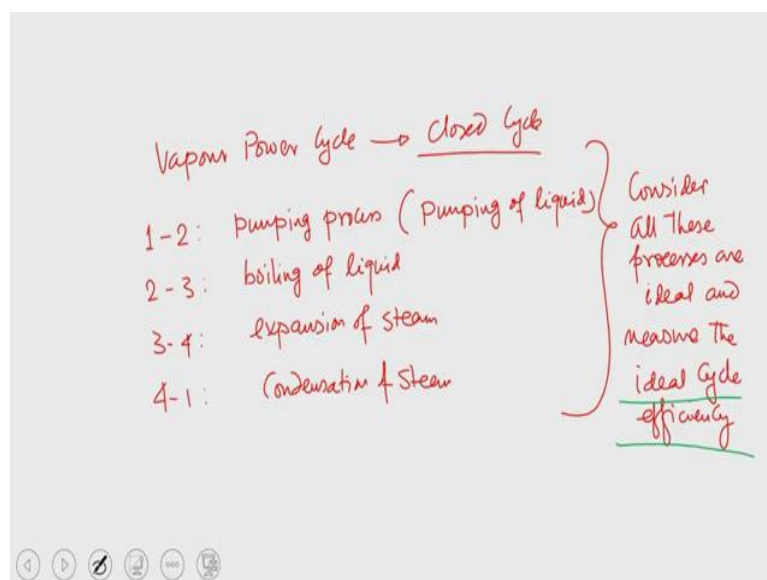 Vapour Power Cycle → Closed Cycle
1-2: pumping process (pumping of liquid)
2-3: boiling of liquid
3-4: expansion of steam
4-1: Condensation of Steam
Consider
all these
processes are
ideal and
measure the
ideal cycle
efficiency